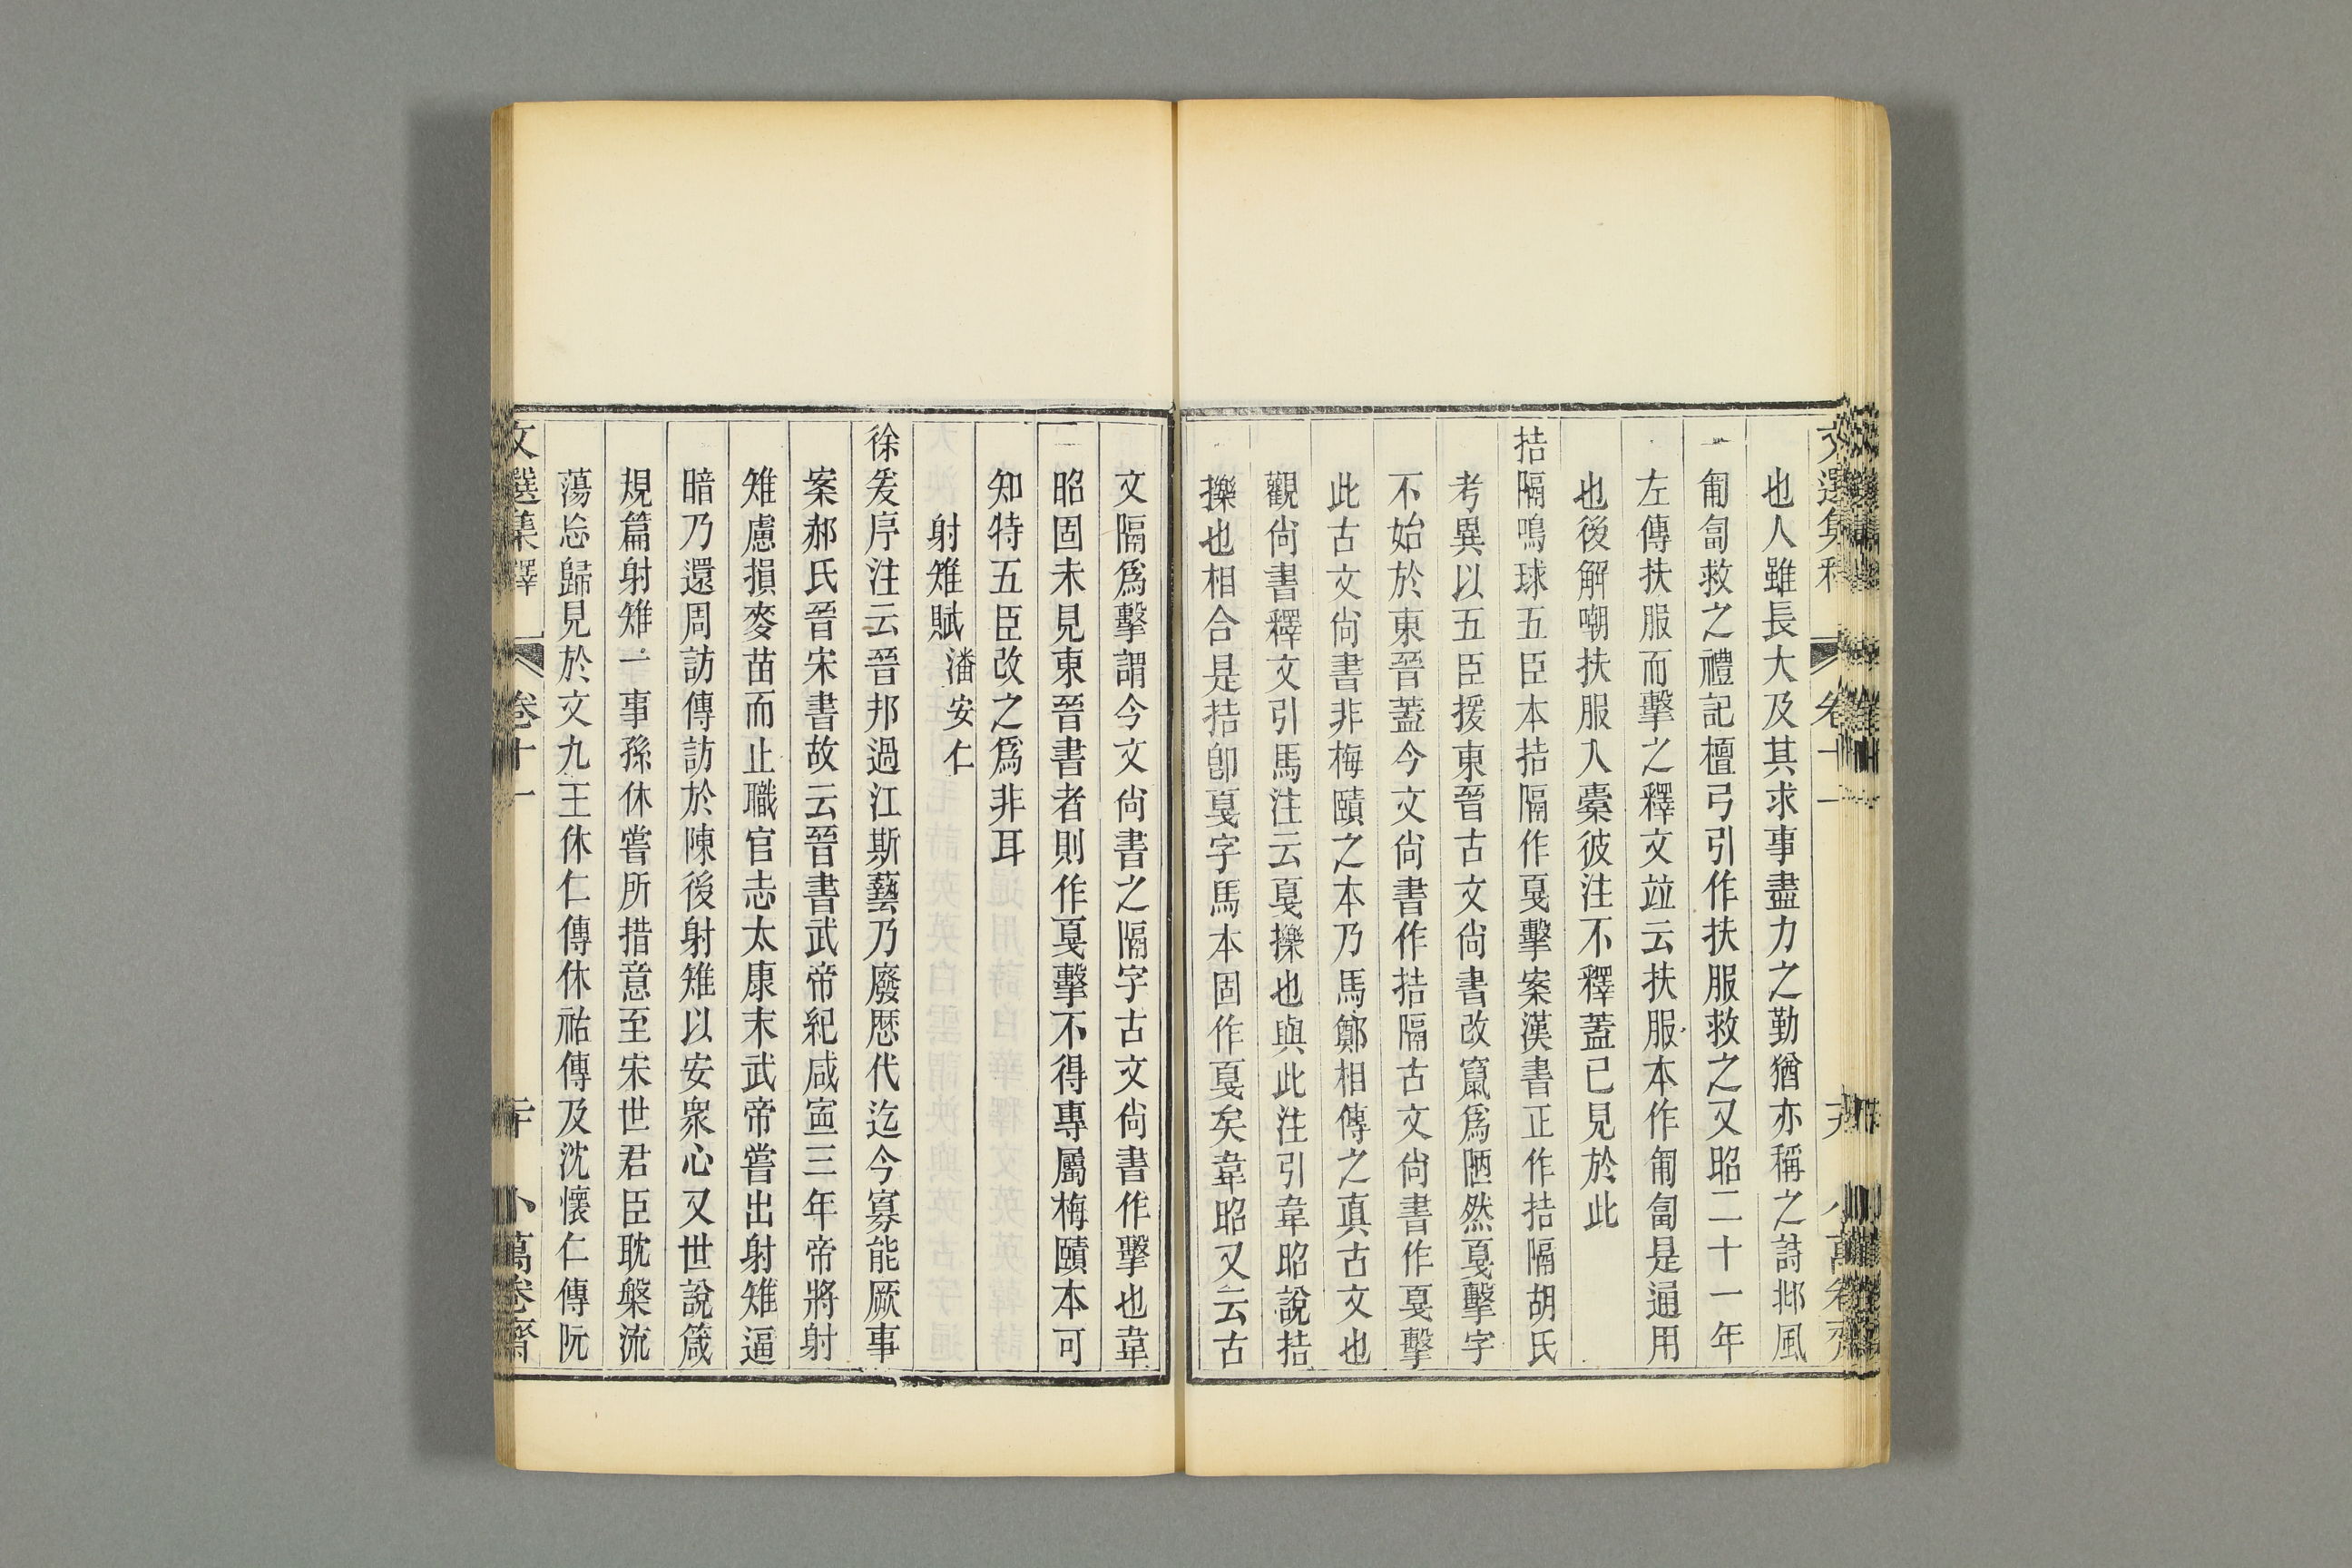 也人雖長大及其求事盡力之勤猶亦稱之詩邶風
匍匐救之禮記檀弓引作扶服救之又昭二十一年
左傳扶服而擊之釋文竝云扶服本作匍匐是通用
也後解嘲扶服入橐彼注不釋蓋已見於此
拮隔鳴球五臣本拮隔作戛擊案漢書正作拮隔胡氏
考異以五臣援東晉古文尚書改竄爲陋然戛擊字
不始於東晉蓋今文尚書作拮隔古文尚書作戛擊
此古文尚書非梅賾之本乃馬鄭相傳之真古文也
觀尚書釋文引馬注云戛擽也與此注引韋昭說拮
擽也相合是拮卽戛字馬本固作戛矣韋昭又云古
文隔爲擊謂今文尚書之隔字古文尚書作擊也韋
昭固未見東晉書者則作戛擊不得專屬梅賾本可
知特五臣改之爲非耳
射雉賦 潘安仁
徐爰序注云晉邦過江斯藝乃廢歷代迄今寡能厥事
案郝氏晉宋書故云晉書武帝紀咸寍三年帝將射
雉慮損麥苗而止職官志太康末武帝嘗出射雉逼
暗乃還周訪傳訪於陳後射雉以安衆心又世說箴
規篇射雉一事孫休嘗所措意至宋世君臣耽槃流
蕩忩歸見於文九王休仁傳休祐傳及沈懷仁傳阮
文選集釋 卷十一 二十 小萬卷齋